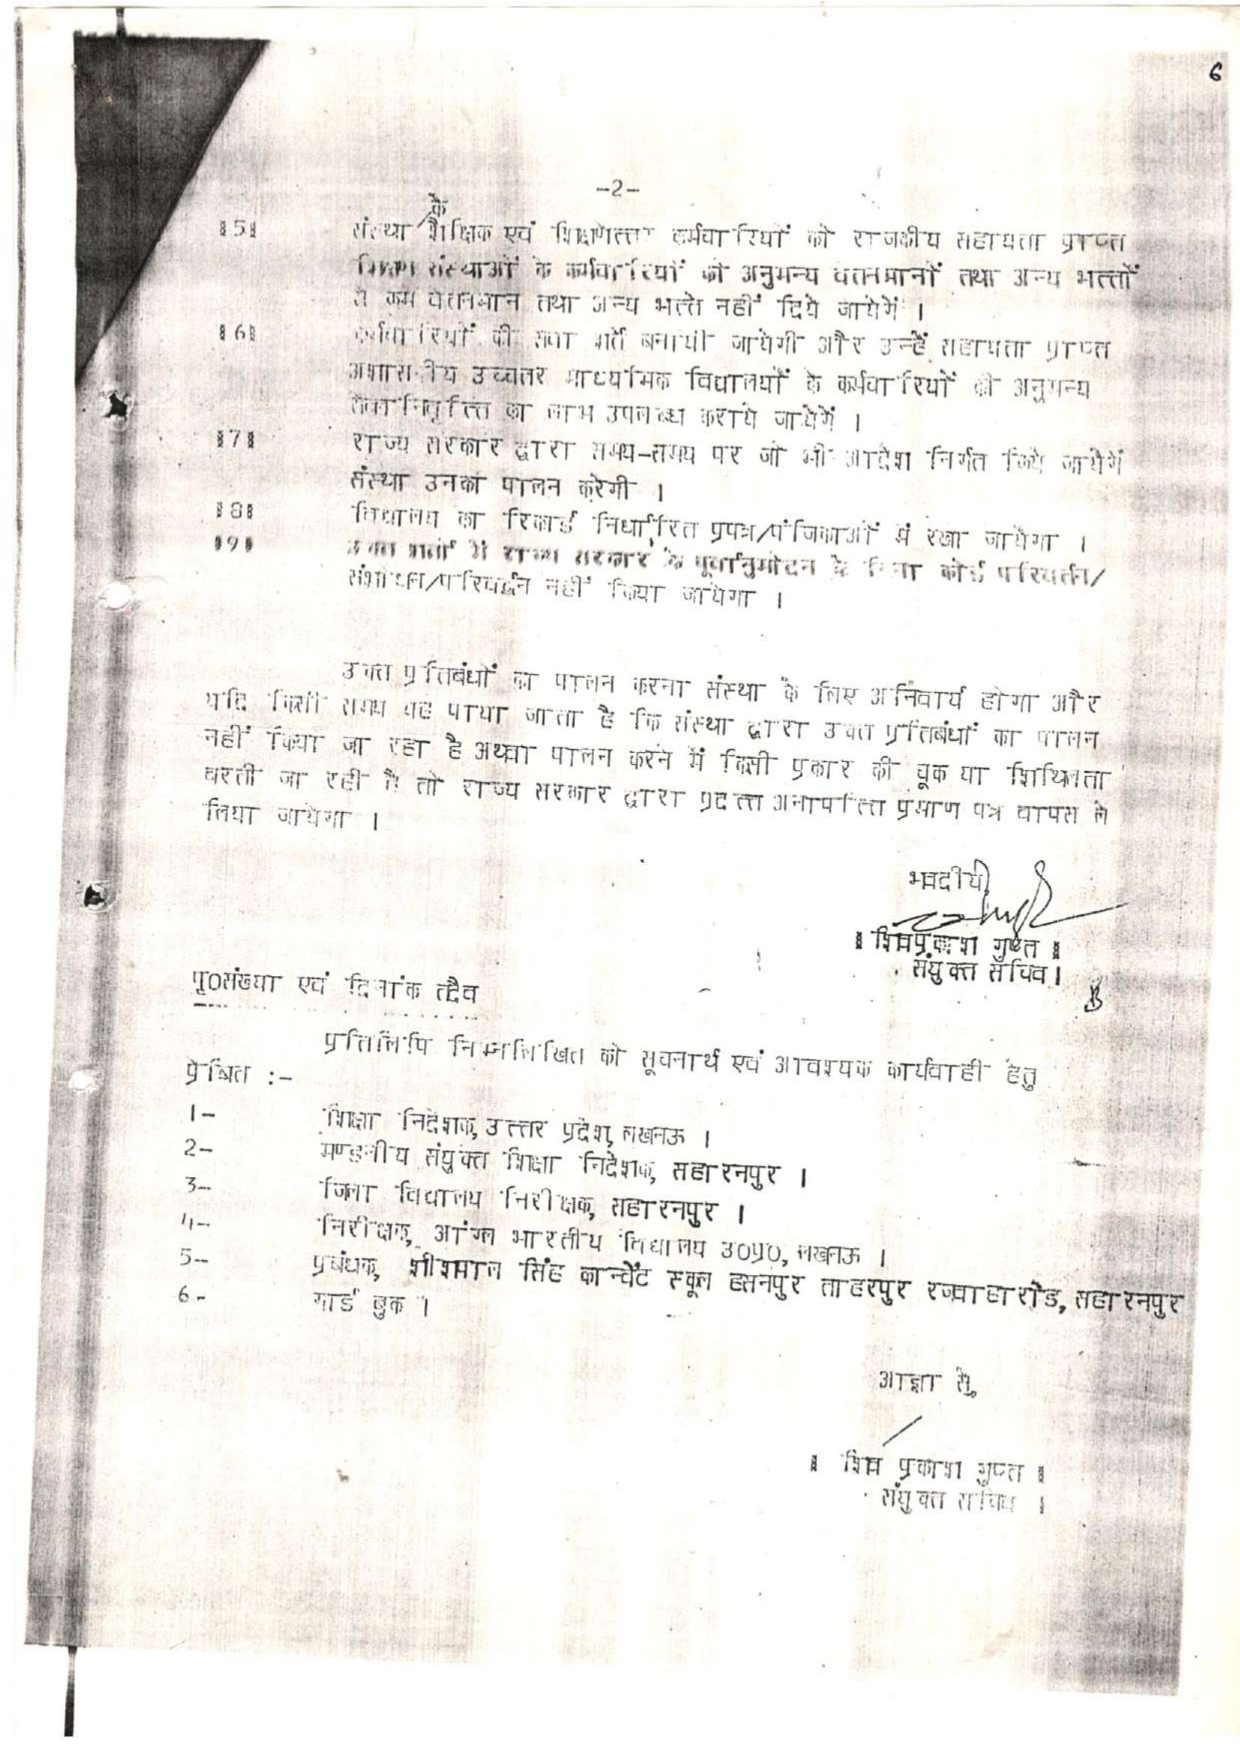 6
-2-
के
§5§ संस्था शैक्षिक एवं शिक्षणेत्तर कर्मचारियों को राजकीय सहायता प्राप्त
शिक्षण संस्थाओं के कर्मचारियों को अनुमन्य वेतनमानों तथा अन्य भत्तों
से कम वेतनमान तथा अन्य भत्ते नहीं दिये जायेगें ।
§6§ कर्मचारियों की सेवा शर्ते बनायी जायेगी और उन्हें सहायता प्राप्त
अशासकीय उच्चतर माध्यमिक विद्यालयों के कर्मचारियों को अनुमन्य
सेवानिवृत्ति का लाभ उपलब्ध कराये जायेगें ।
§7§ राज्य सरकार द्वारा समय-समय पर जो भी आदेश निर्गत किये जायेगें
संस्था उनका पालन करेगी ।
§8§ विद्यालय का रिकार्ड निर्धारित प्रपत्र/पंजिकाओं में रखा जायेगा ।
§9§ उक्त शर्तो में राज्य सरकार के पूर्वानुमोदन के बिना कोई परिवर्तन/
संशोधन/परिवर्द्धन नहीं किया जायेगा ।
उक्त प्रतिबंधों का पालन करना संस्था के लिए अनिवार्य होगा और
यदि किसी समय यह पाया जाता है कि संस्था द्वारा उक्त प्रतिबंधों का पालन
नहीं किया जा रहा है अथवा पालन करने में किसी प्रकार की चूक या शिथिलता
बरती जा रही है तो राज्य सरकार द्वारा प्रदत्त अनापत्ति प्रमाण पत्र वापस ले
लिया जायेगा ।
भवदीय
§ शिवप्रकाश गुप्त §
संयुक्त सचिव।
पृ0संख्या एवं दिनांक तदैव
प्रतिलिपि निम्नलिखित को सूचनार्थ एवं आवश्यक कार्यवाही हेतु
प्रेषित :-
1- शिक्षा निदेशक, उत्तर प्रदेश, लखनऊ ।
2- मण्डलीय संयुक्त शिक्षा निदेशक, सहारनपुर ।
3- जिला विद्यालय निरीक्षक, सहारनपुर ।
4- निरीक्षक, आंग्ल भारतीय विद्यालय उ0प्र0, लखनऊ ।
5- प्रबंधक, शीशमाल सिंह कान्वेंट स्कूल हसनपुर ताहरपुर रजवाहा रोड, सहारनपुर
6- गार्ड बुक ।
आज्ञा से,
§ शिव प्रकाश गुप्त §
संयुक्त सचिव ।